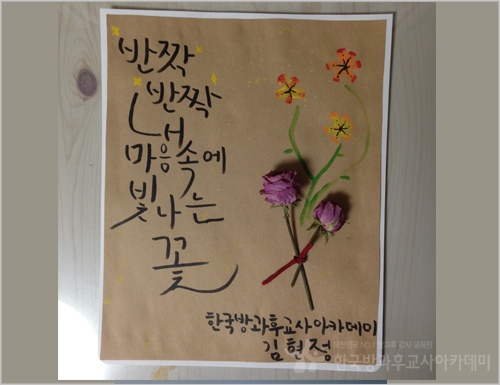 반짝
반짝
너
마음속에
빛나는
꽃
한국방과후교사아카데미
김현정
한국방과후교사아카데미